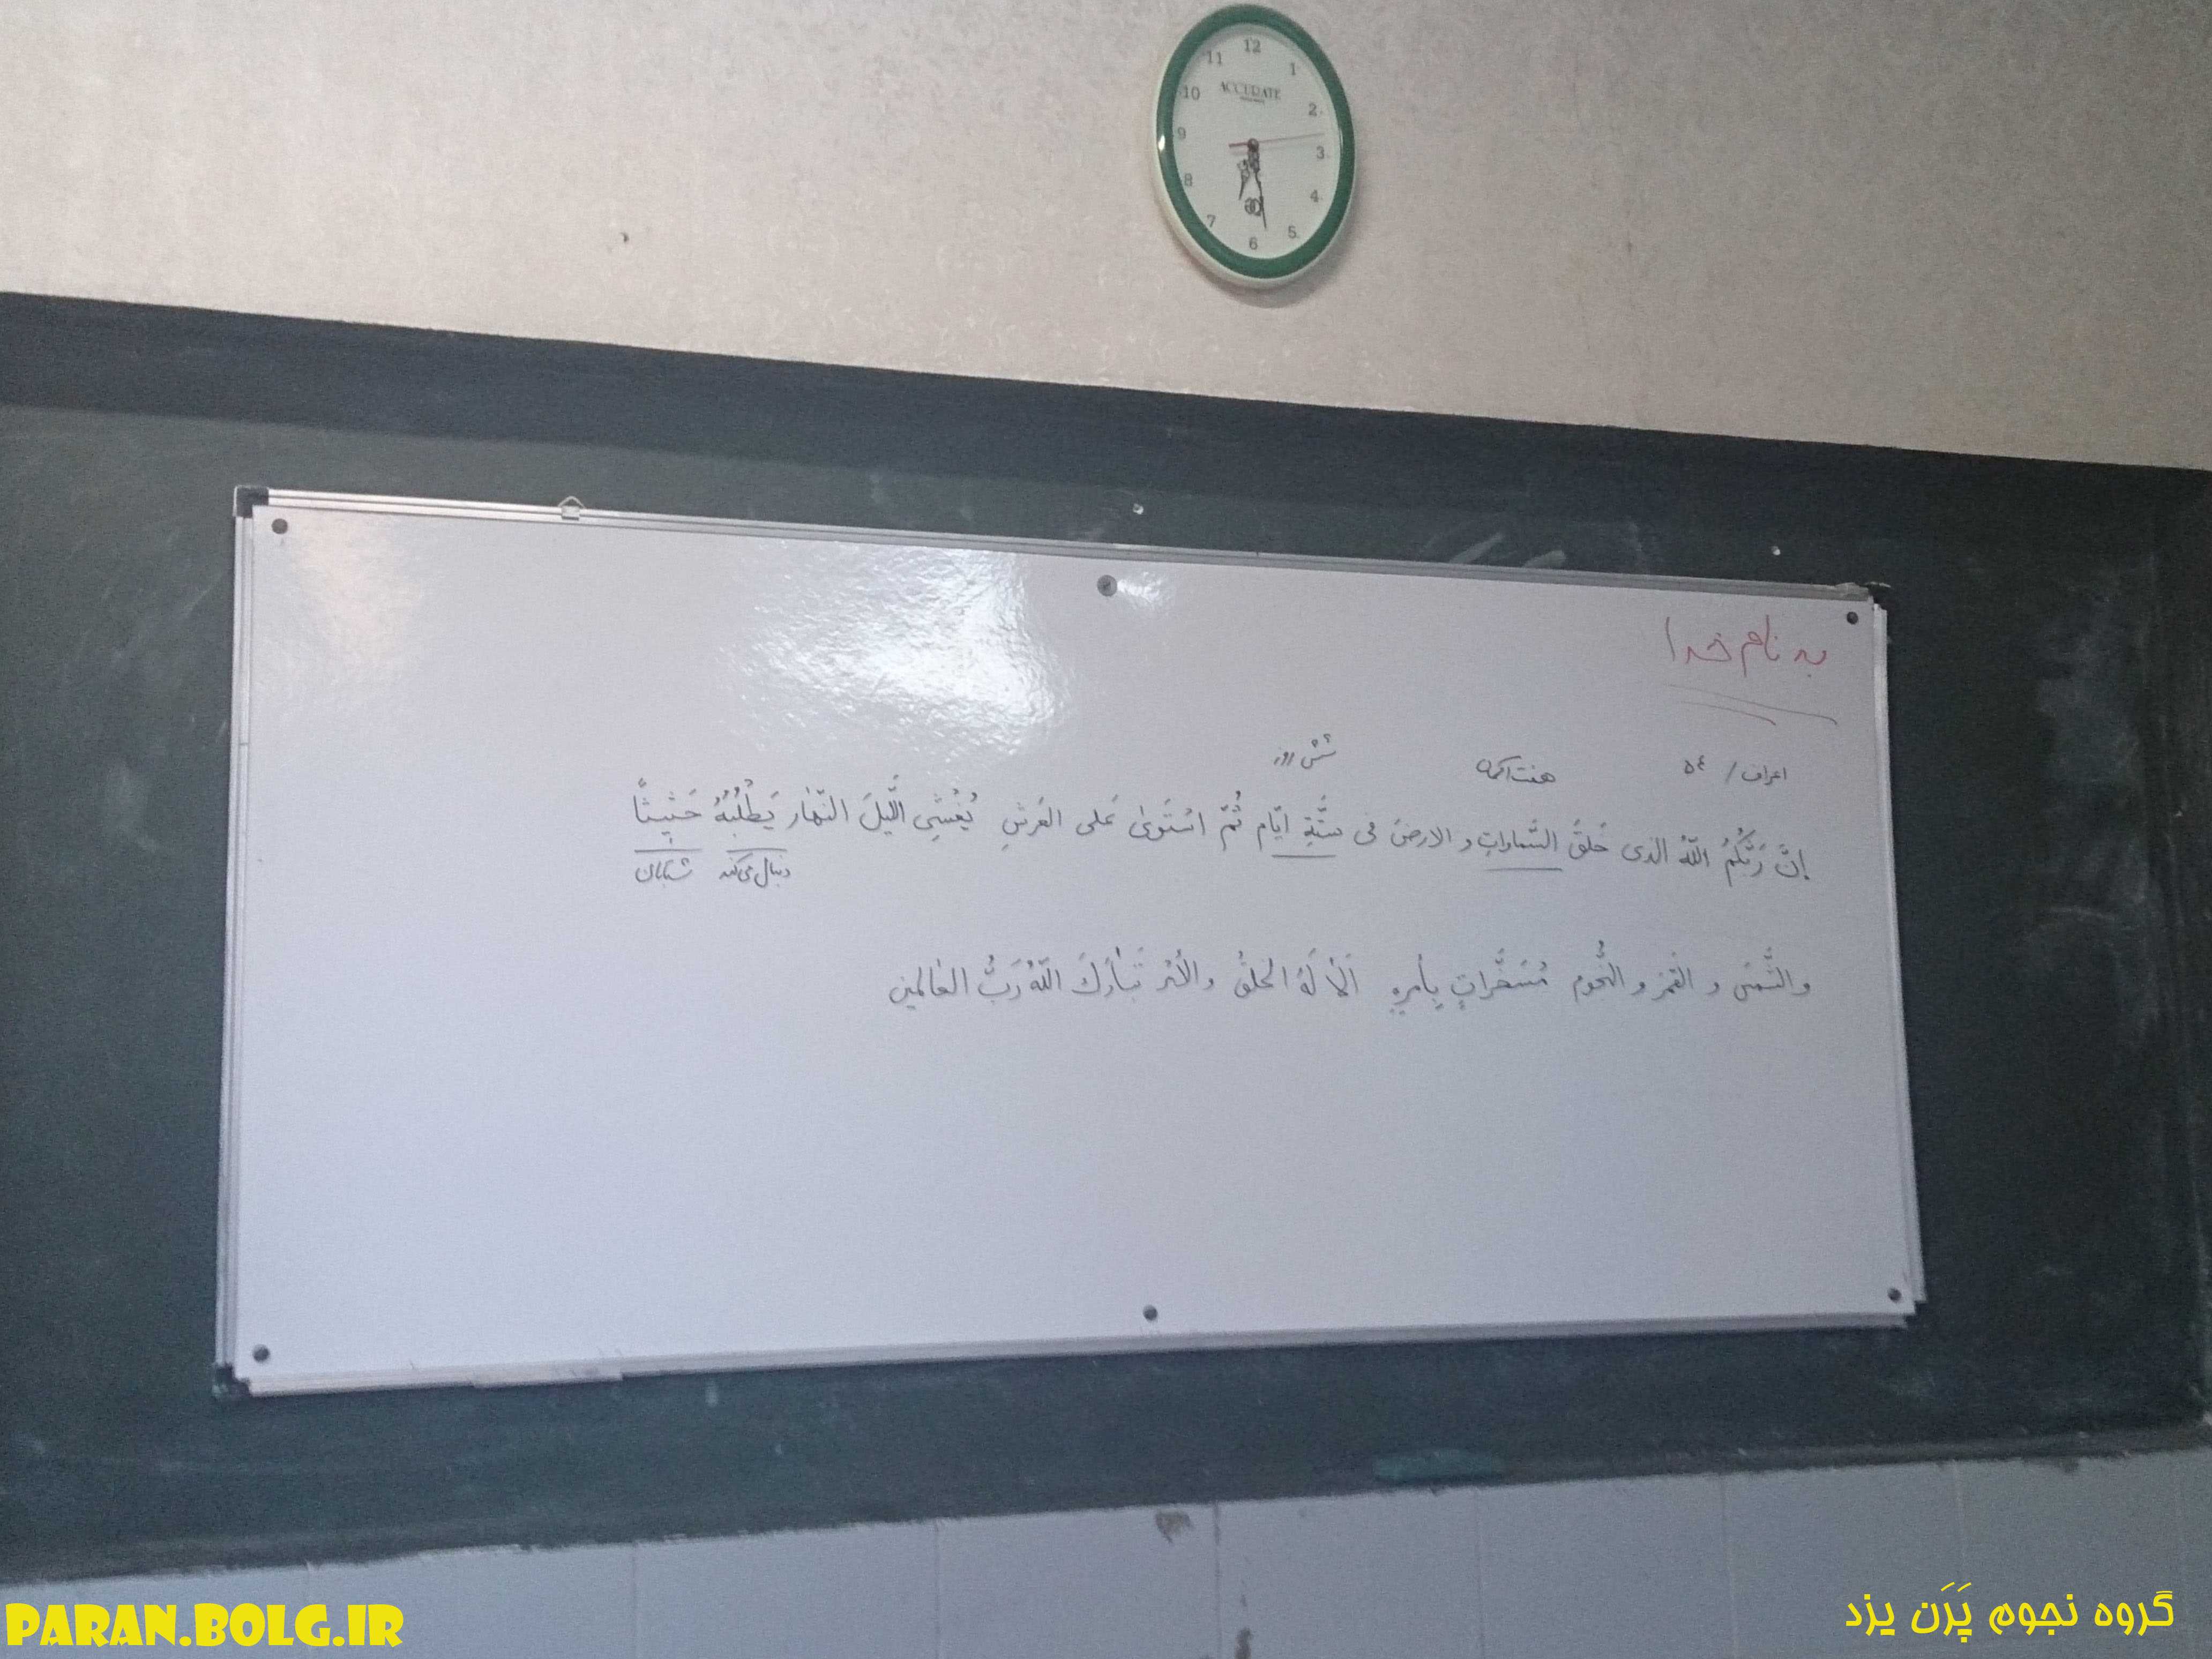 12
11
1
10
ACCURATE
2
9
3
8
4
7
5
6
به نام خدا
اعراف / ٥٤
هفت آسمان
شش روز
إنَّ رَبَّكُمُ اللّهُ الذی خَلَقَ السَّماواتِ و الارضَ فی ستَّةِ ایّام ثُمَّ اسْتَوىٰ عَلی العَرشِ یُغْشِی اللَّیلَ النّهار یَطْلُبُهُ حَثیثاً
دنبال می‌کند شتابان
والشَّمسَ و القَمَرَ و النُّجُوم مُسَخَّراتٍ بِأمرِهِ اَلا لَهُ الخلقُ والأمر تَبٰارَكَ اللّهُ رَبُّ العٰالمین
PARAN.BOLG.IR
گروه نجوم پَرَن یزد